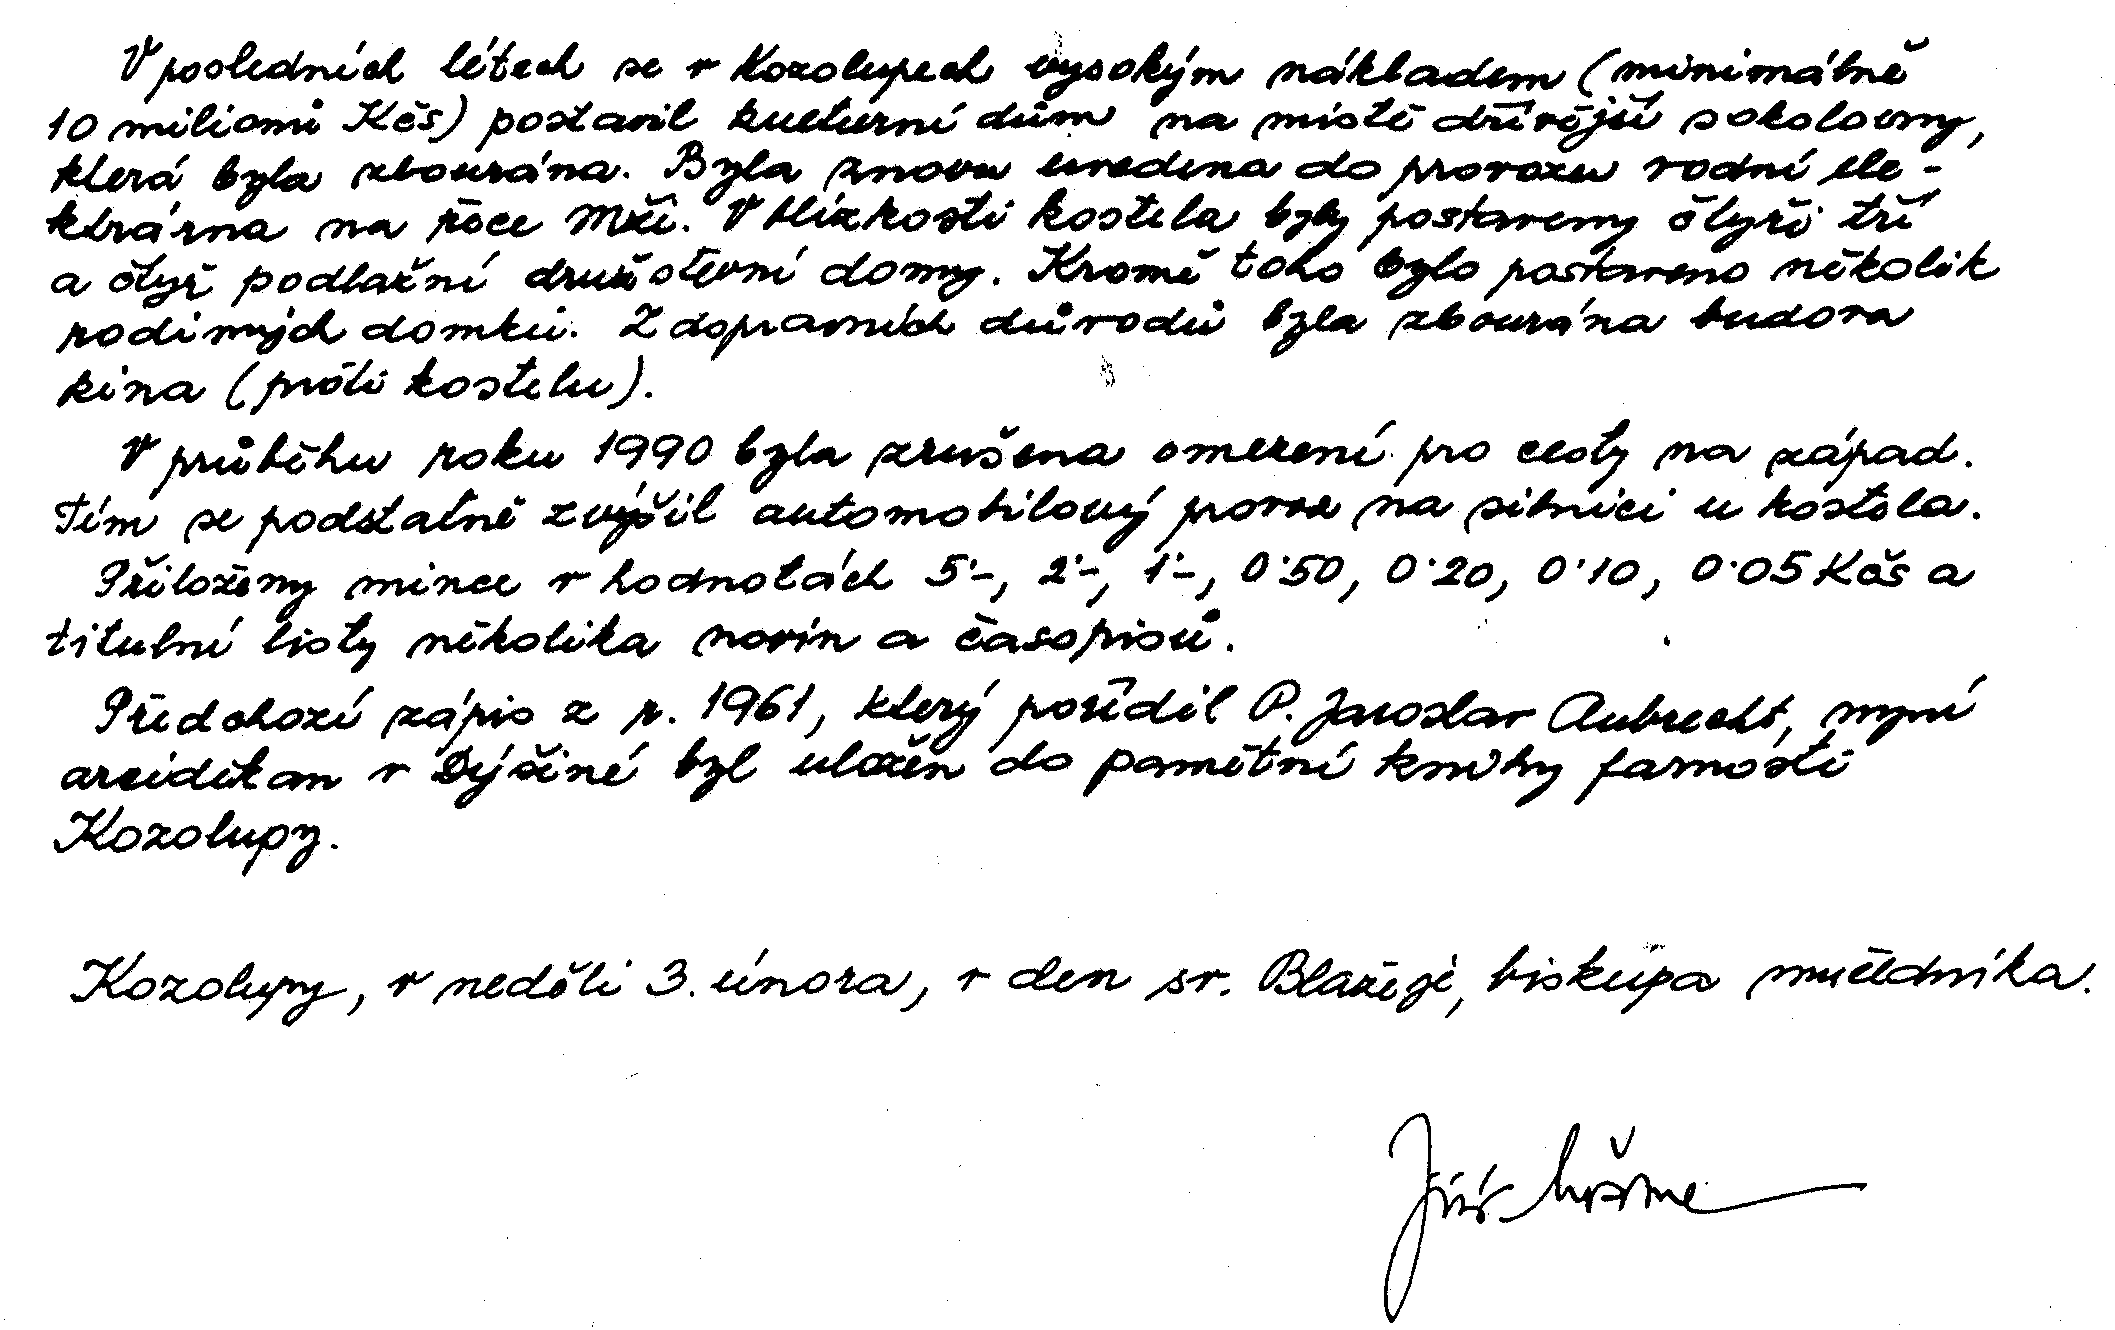 V posledních létech se v Kozolupech vysokým nákladem (minimálně
10 milionů Kčs) postavil kulturní dům na místě dřívější sokolovny,
která byla zbourána. Byla znovu uvedena do provozu vodní ele-
ktrárna na řece Mži. V blízkosti kostela byly postaveny čtyři tří
a čtyř podlažní družstevní domy. Kromě toho bylo postaveno několik
rodinných domků. Z dopravních důvodů byla zbourána budova
kina (proti kostelu).
V průběhu roku 1990 byla zrušena omezení pro cesty na západ.
Tím se podstatně zvýšil automobilový provoz na silnici u kostela.
Přiloženy mince v hodnotách 5·-, 2·-, 1·-, 0·50, 0·20, 0·10, 0·05 Kčs a
titulní listy několika novin a časopisů.
Předchozí zápis z r. 1961, který pořídil P. Jaroslav Aubrecht, nyní
arciděkan v Dýšině byl uložen do pamětní knihy farnosti
Kozolupy.
Kozolupy, v neděli 3. února, v den sv. Blažeje, biskupa mučedníka.
Jiří